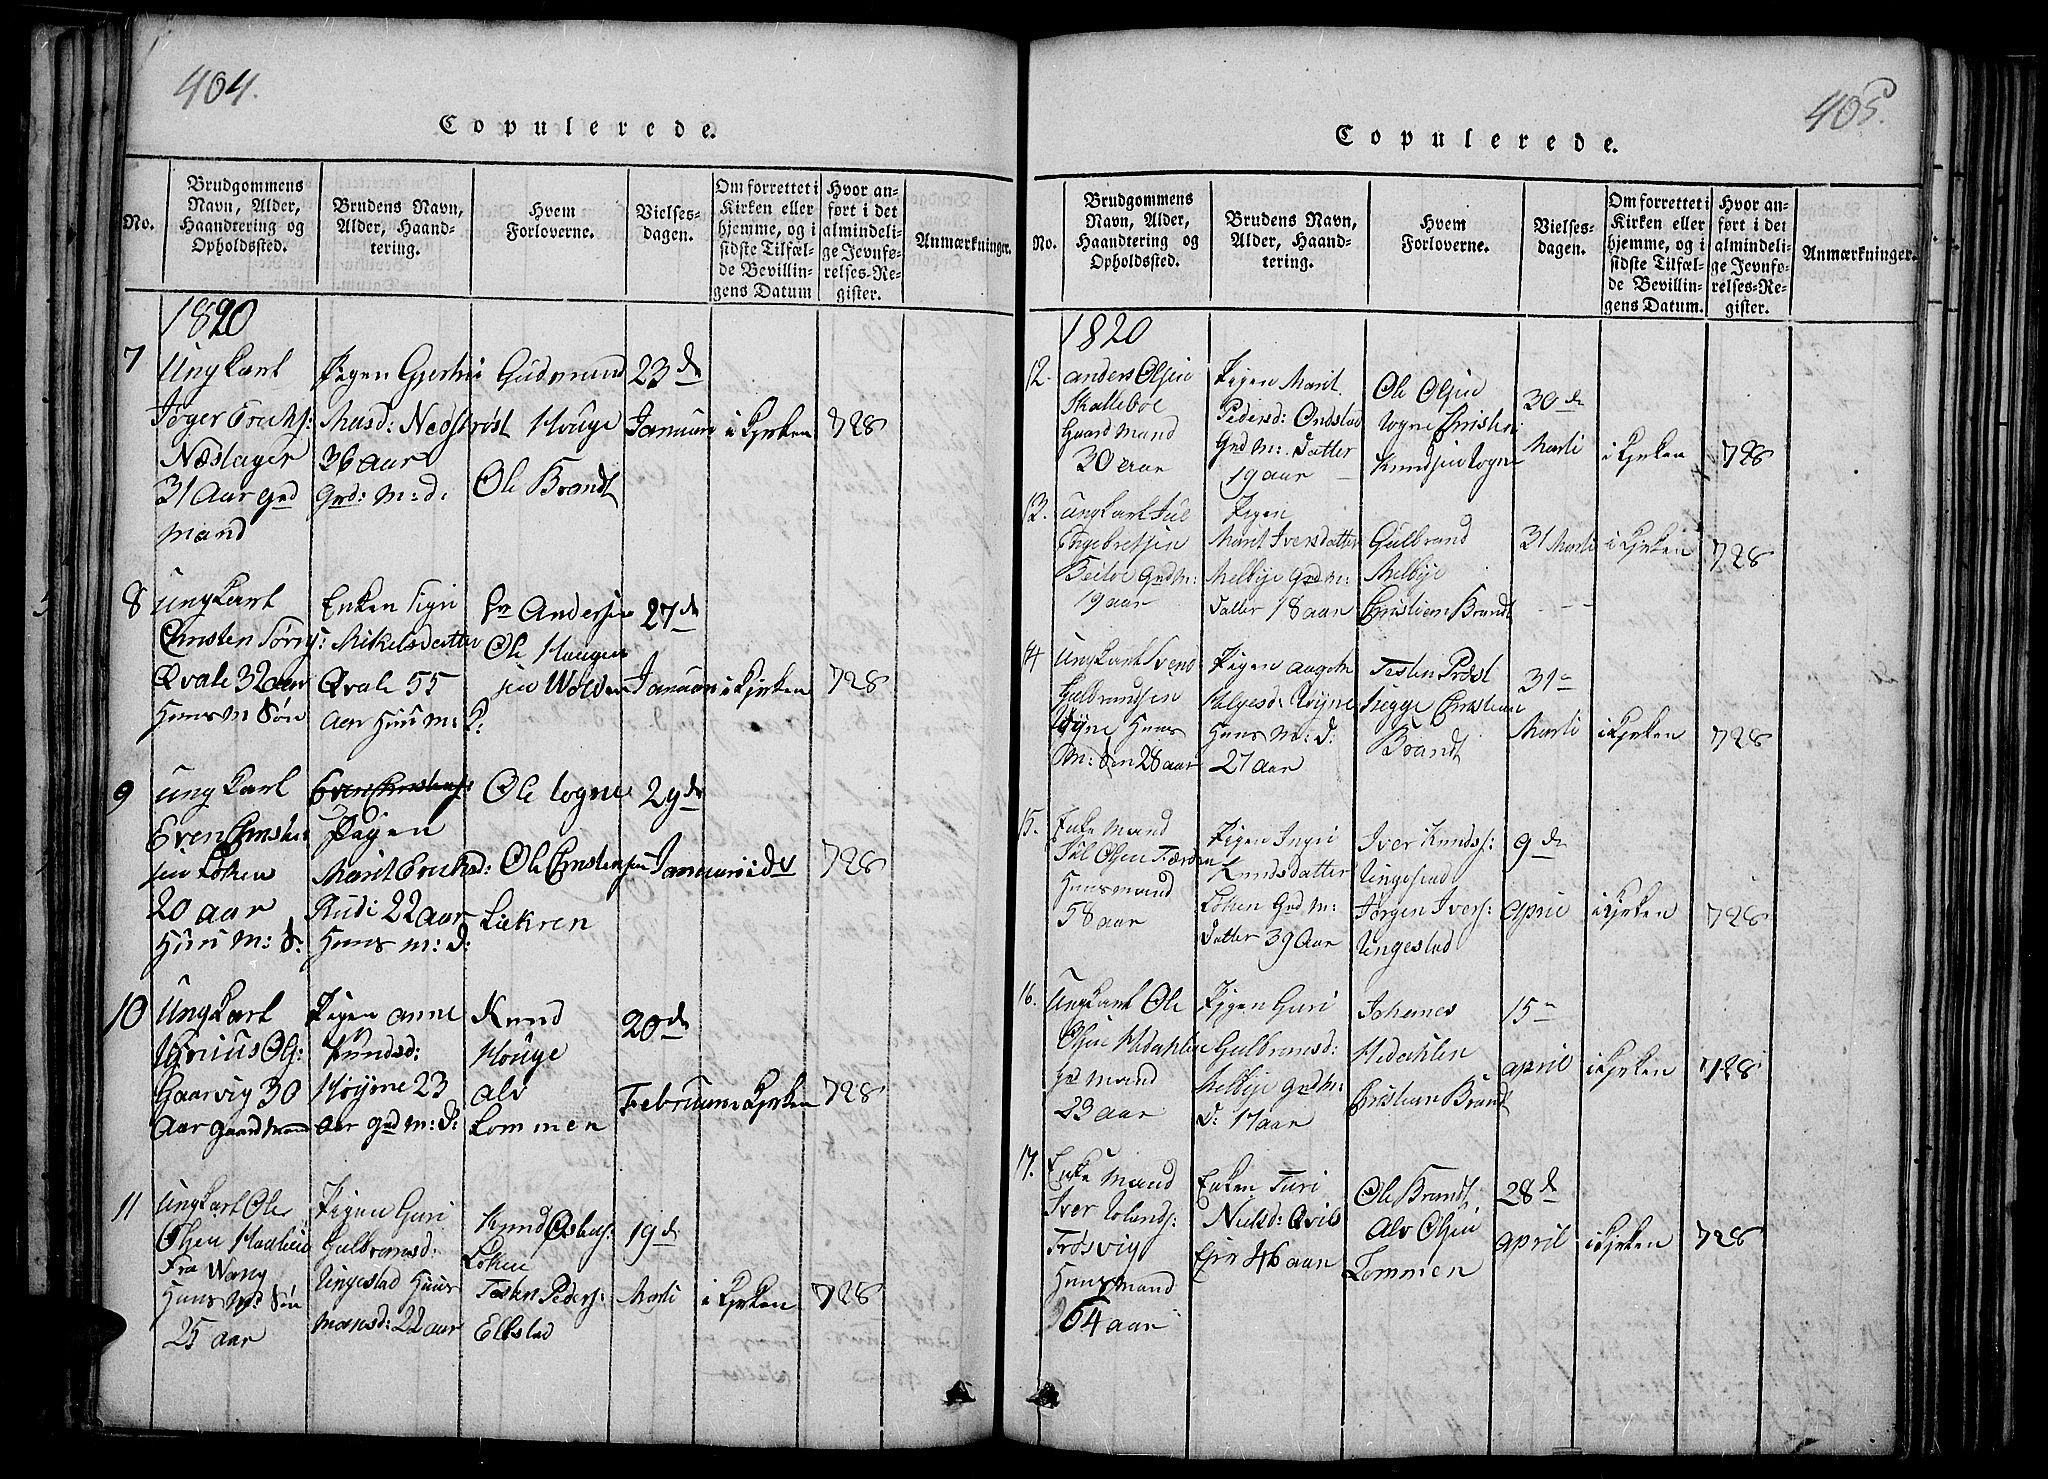 404.
Copulerede.
No.
Brudgommens
Navn, Alder,
Haandtering og
Opholdssted.
Brudens Navn,
Alder, Haand-
tering.
Hvem
Forloverne.
Vielses-
dagen.
Om forrettet i
Kirken eller
hjemme, og i
sidste Tilfæl-
de Bevillin-
gens Datum
Hvor an-
ført i det
almindeli-
ge Jevnfø-
relses-Re-
gister.
Anmærkninger.
1820
7
Ungkarl
Erichs:
Næslager
31 Aar Grd
mand
Pigen
36 aar
Grd: M: d:
Gudmund
Houge
Ole Brandt
23de
Januari
i Kjrken
728
8
Ungkarl
Christen
Qvale 32 aar
Huus M Søn
Enken Sigri
Mikelsdatter
Qvale 55
aar Huu M: E:
Andersen
Ole Haugen
27de
Januari
i Kjrken
728
9
Ungkarl
Even Christen
sen Løken
20 aar
Huu M: S:
Pigen
Marit Erichsd:
Rudi 22 aar
Huus M: D:
Ole Wogne
Ole Christensen
Liekren
29de
Januari
i do
728
10
Ungkarl
Ols:
Gaarvig 30
Aar Gaardmand
Pigen Anne
Knudsd:
Høyne 23
Aar Grd M: D:
Knud
Houge
Alv
Lommen
20de
Februari
i Kjrken
728
11
Ungkarl Ole
Olsen
Fra Wang
Huus M: Søn
25 aar
Pigen Guri
Guldbransd:
Ungestad Huus
mansd: 22 aar
Knud
Løken
Tosten Peders:
Elkstad
19de
Marti
i Kjrken
728
405.
Copulerede.
No.
Brudgommens
Navn, Alder,
Haandtering og
Opholdssted.
Brudens Navn,
Alder, Haand-
tering.
Hvem
Forloverne.
Vielses-
dagen.
Om forrettet i
Kirken eller
hjemme, og i
sidste Tilfæl-
de Bevillin-
gens Datum.
Hvor an-
ført i det
almindeli-
ge Jevnfø-
relses-Re-
gister.
Anmærkninger.
1820
12.
Anders Olsen
Skattebøe
Gaard Mand
30 Aar
Pigen Marit
Pedersd: Ondstad
Grd M: Datter
19 aar
Ole Olsen
Wogne Christen
Knudsen Wogne
30de
Marti
i Kjrken
728
13.
Ungkarl Jul
Engebretsen
Beitoe Grd M:
19 aar
Pigen
Marit Iversdatter
Melbÿe Grd M:
Datter 18 aar
Gulbrand
Melbÿe
Christian Brandt
31 Marti
i Kjrken
728
14
Ungkarl Svend
Gulbrandsen
Høyne Huus
M: Søn 28 aar
Pigen Aagothe
Helgesd: Høyne
Huus M: D:
27 aar
Tosten Prøst
Sigge Christian
Brandt
31te
Marti
i Kjrken
728
15.
Enke Mand
Jul Olsen
Huusmand
58 aar
Pigen Ingri
Knudsdatter
Løken Grd M:
Datter 39 Aar
Iver Knuds:
Ungestad
Jørgen Ivers:
Ungestad
9de
April
i Kjrken
728
16.
Ungkarl Ole
Olsen Hedahlen
Grd Mand
23 aar
Pigen Guri
Guldbransd:
Melbÿe Grd M:
D: 17 aar
Johannes
Hedahlen
Christian Brandt
15te
April
i Kjrken
728
17.
Enke Mand
Iver
Trøsvig
Huusmand
64 aar
Enken Turi
Nielsd: Qvils
Ejer 46 aar
Ole Brandt
Alv Olsen
Lommen
28de
April
i Kjrken
728